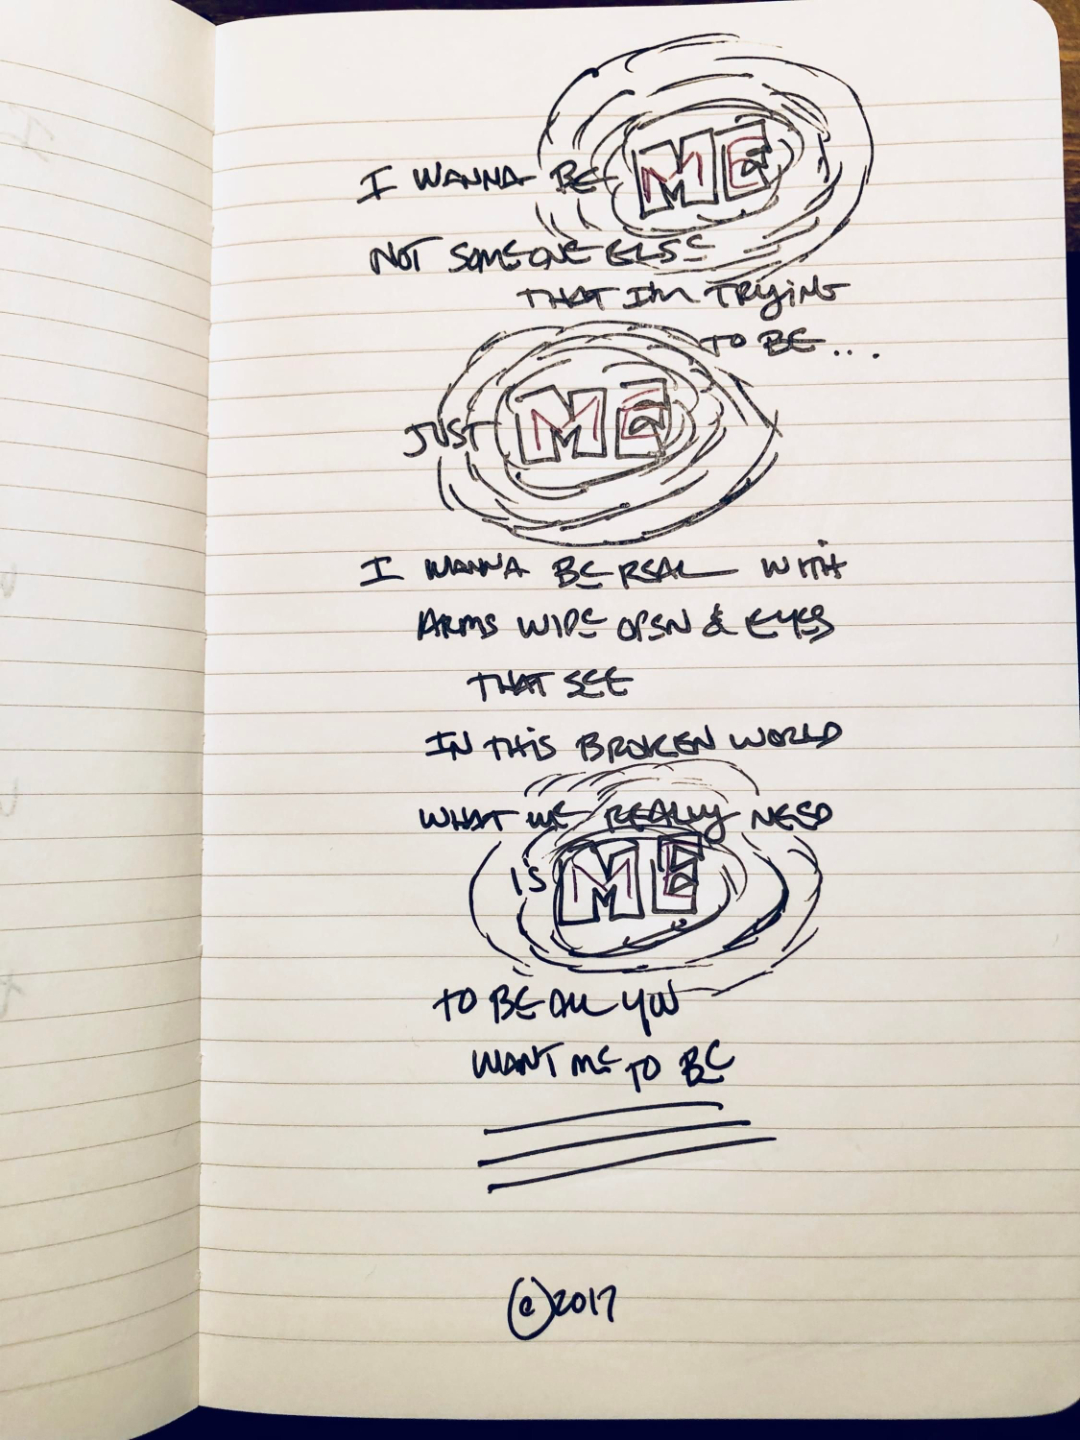 I WANNA BE ME
NOT SOMEONE ELSE
THAT I'm TRYING
TO BE...
JUST ME
I WANNA BE REAL WITH
ARMS WIDE OPEN & EYES
THAT SEE
IN THIS BROKEN WORLD
WHAT WE REALLY NEED
IS ME
TO BE ALL YOU
WANT ME TO BE
©2017